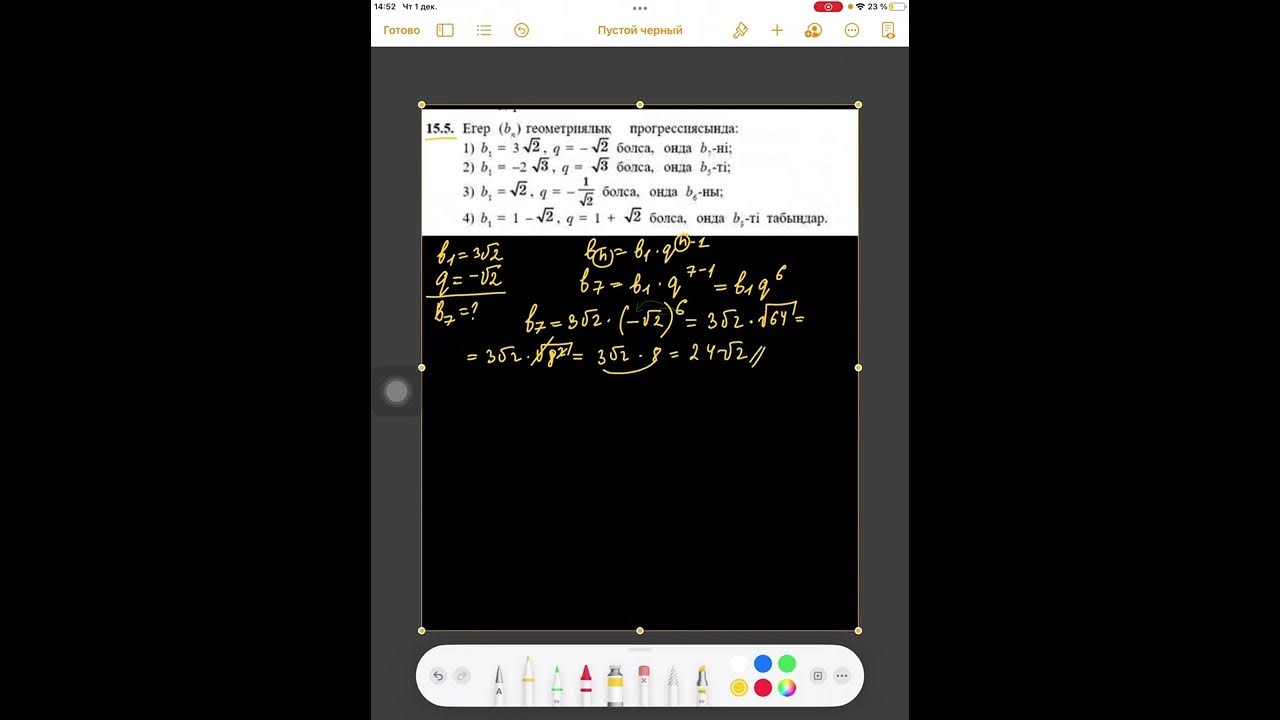 14:52 Чт 1 дек. 23 %
Готово Пустой черный
15.5. Егер (bₙ) геометриялық прогрессиясында:
1) b₁ = 3√2, q = −√2 болса, онда b₇-ні;
2) b₁ = −2√3, q = √3 болса, онда b₅-ті;
3) b₁ = √2, q = −1/√2 болса, онда b₆-ны;
4) b₁ = 1 − √2, q = 1 + √2 болса, онда b₅-ті табыңдар.
b₁ = 3√2 bₙ = b₁ · qⁿ⁻¹
q = −√2 b₇ = b₁ · q⁷⁻¹ = b₁q⁶
B₇ = ? b₇ = 3√2 · (−√2)⁶ = 3√2 · √64 =
= 3√2 · √8² = 3√2 · 8 = 24√2 //
A